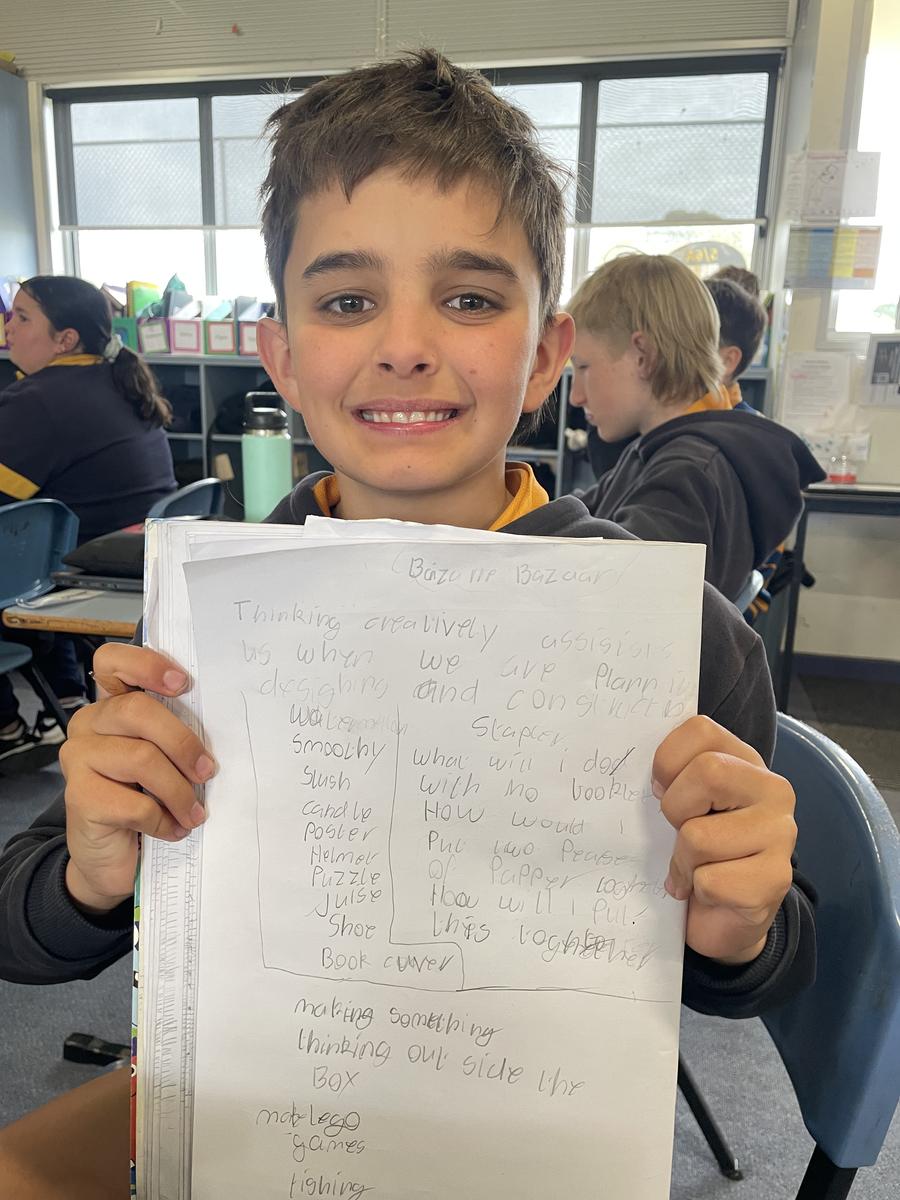 Bizarre Bazaar
Thinking creatively assisists
us when we are Plannin
designing and constructin
Watermelon
smoothy
slush
candle
poster
Helmet
Puzzle
juise
Shoe
Book cuver
Stapler
what will i do
with no booklet
How would i
Put two Pease
Of Papper
How will i Put
this
making something
thinking out side the
Box
make lego
games
fishing